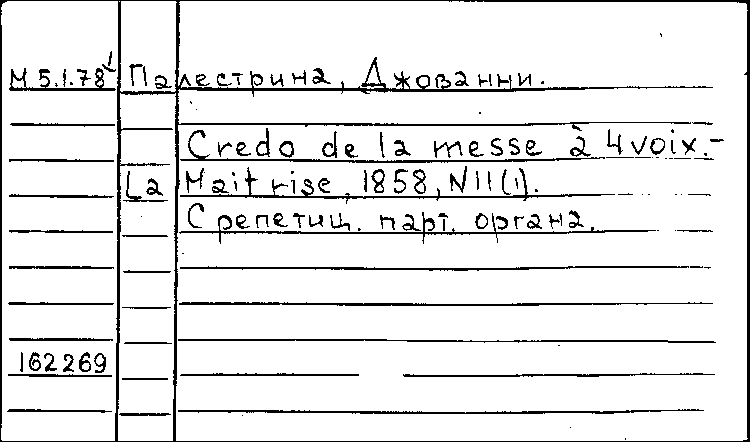 М 5.1.78 Палестрина, Джованни.
Credo de la messe à 4 voix.-
La Maitrise, 1858, N11(1).
С репетиц. парт. органа.
162269